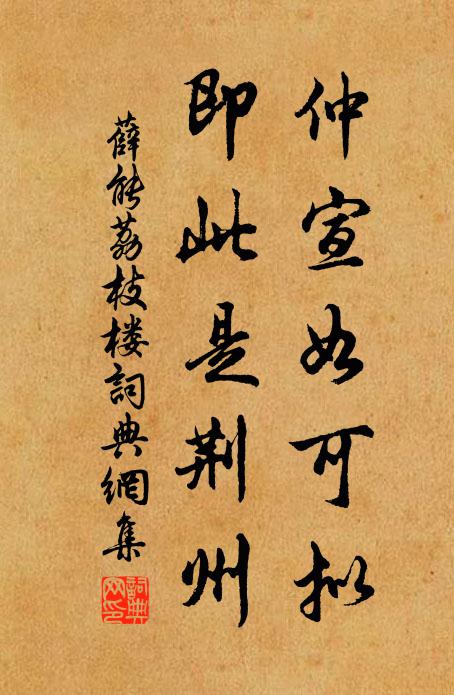 仲宣如可拟
即此是荆州
薛能荔枝楼詞典網集
詞典網印